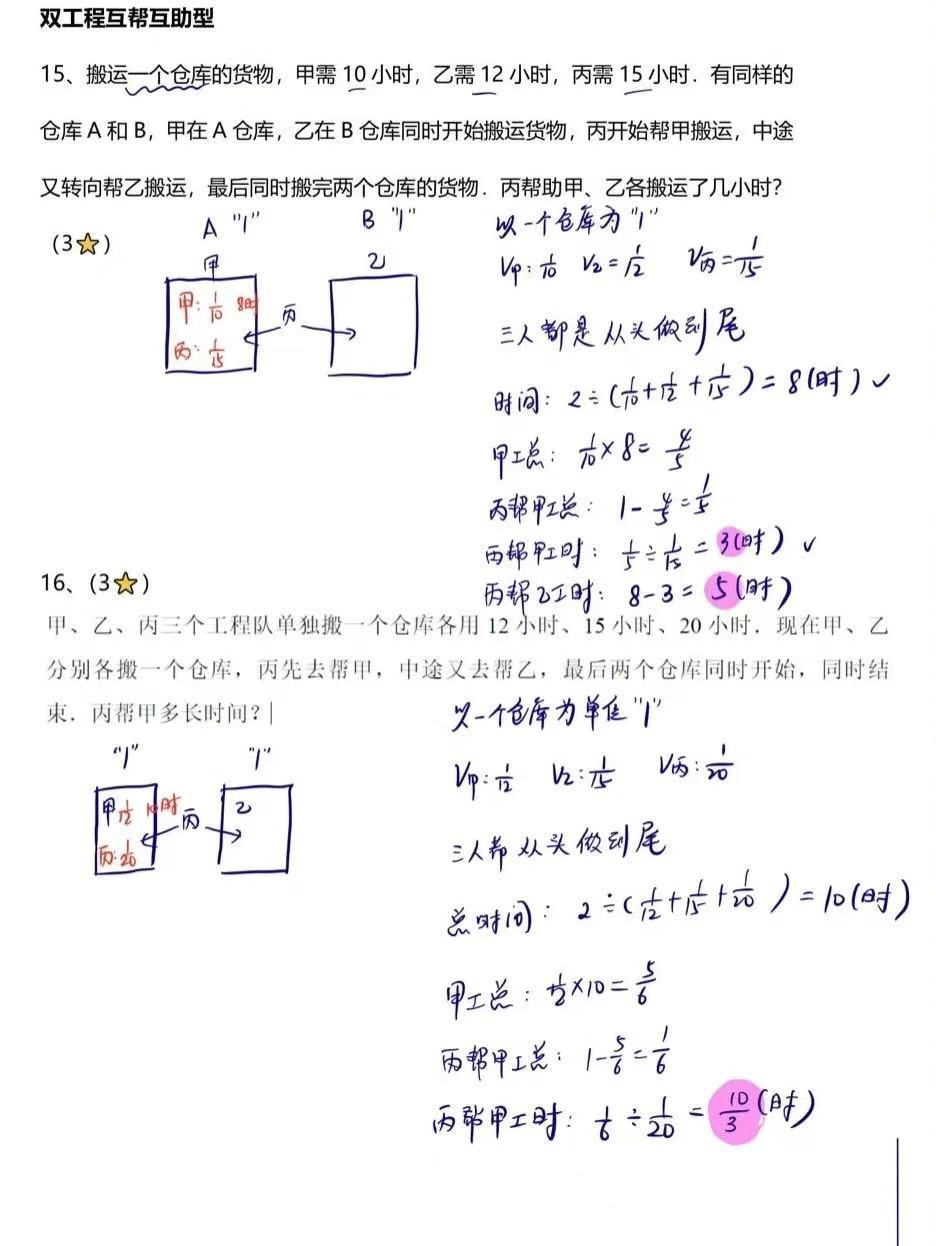 双工程互帮互助型
15、搬运一个仓库的货物，甲需 10 小时，乙需 12 小时，丙需 15 小时．有同样的
仓库 A 和 B，甲在 A 仓库，乙在 B 仓库同时开始搬运货物，丙开始帮甲搬运，中途
又转向帮乙搬运，最后同时搬完两个仓库的货物．丙帮助甲、乙各搬运了几小时？
（3⭐）
A "1"
B "1"
甲
乙
甲: 1/10 8时
丙: 1/15
丙
以一个仓库为"1"
V甲: 1/10 V乙=1/12 V丙=1/15
三人都是从头做到尾
时间: 2÷(1/10+1/12+1/15)=8(时)✓
甲工总: 1/10×8=4/5
丙帮甲工总: 1-4/5=1/5
丙帮甲工时: 1/5÷1/15=3(时)✓
丙帮乙工时: 8-3=5(时)
16、（3⭐）
甲、乙、丙三个工程队单独搬一个仓库各用 12 小时、15 小时、20 小时．现在甲、乙
分别各搬一个仓库，丙先去帮甲，中途又去帮乙，最后两个仓库同时开始，同时结
束．丙帮甲多长时间？
"1"
"1"
甲 1/12 10时
丙: 1/20
丙
乙
以一个仓库为单位"1"
V甲: 1/12 V乙: 1/15 V丙: 1/20
三人都从头做到尾
总时间: 2÷(1/12+1/15+1/20)=10(时)
甲工总: 1/12×10=5/6
丙帮甲工总: 1-5/6=1/6
丙帮甲工时: 1/6÷1/20=10/3(时)